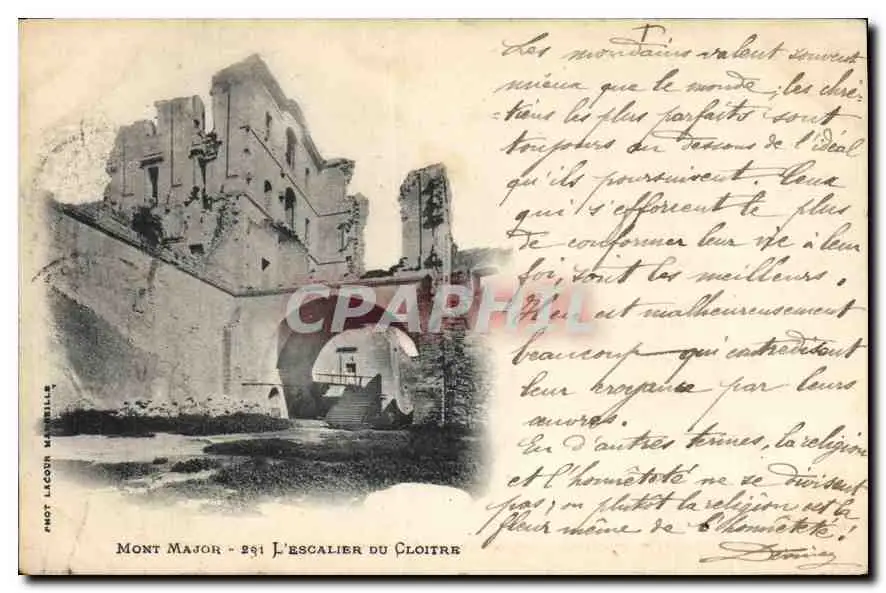 Les mondains valent souvent
mieux que le monde ; les chré-
-tiens les plus parfaits sont
toujours au dessous de l'idéal
qu'ils poursuivent. Ceux
qui s'efforcent le plus
de conformer leur vie à leur
foi, sont les meilleurs.
Il en est malheureusement
beaucoup qui contredisent
leur croyance par leurs
œuvres.
En d'autres termes, la religion
et l'honnêteté ne se divisent
pas ; ou plutôt la religion est la
fleur même de l'honnêteté !
CPAPHIL.com
PHOT LACOUR MARSEILLE
MONT MAJOR - 291 L'ESCALIER DU CLOITRE